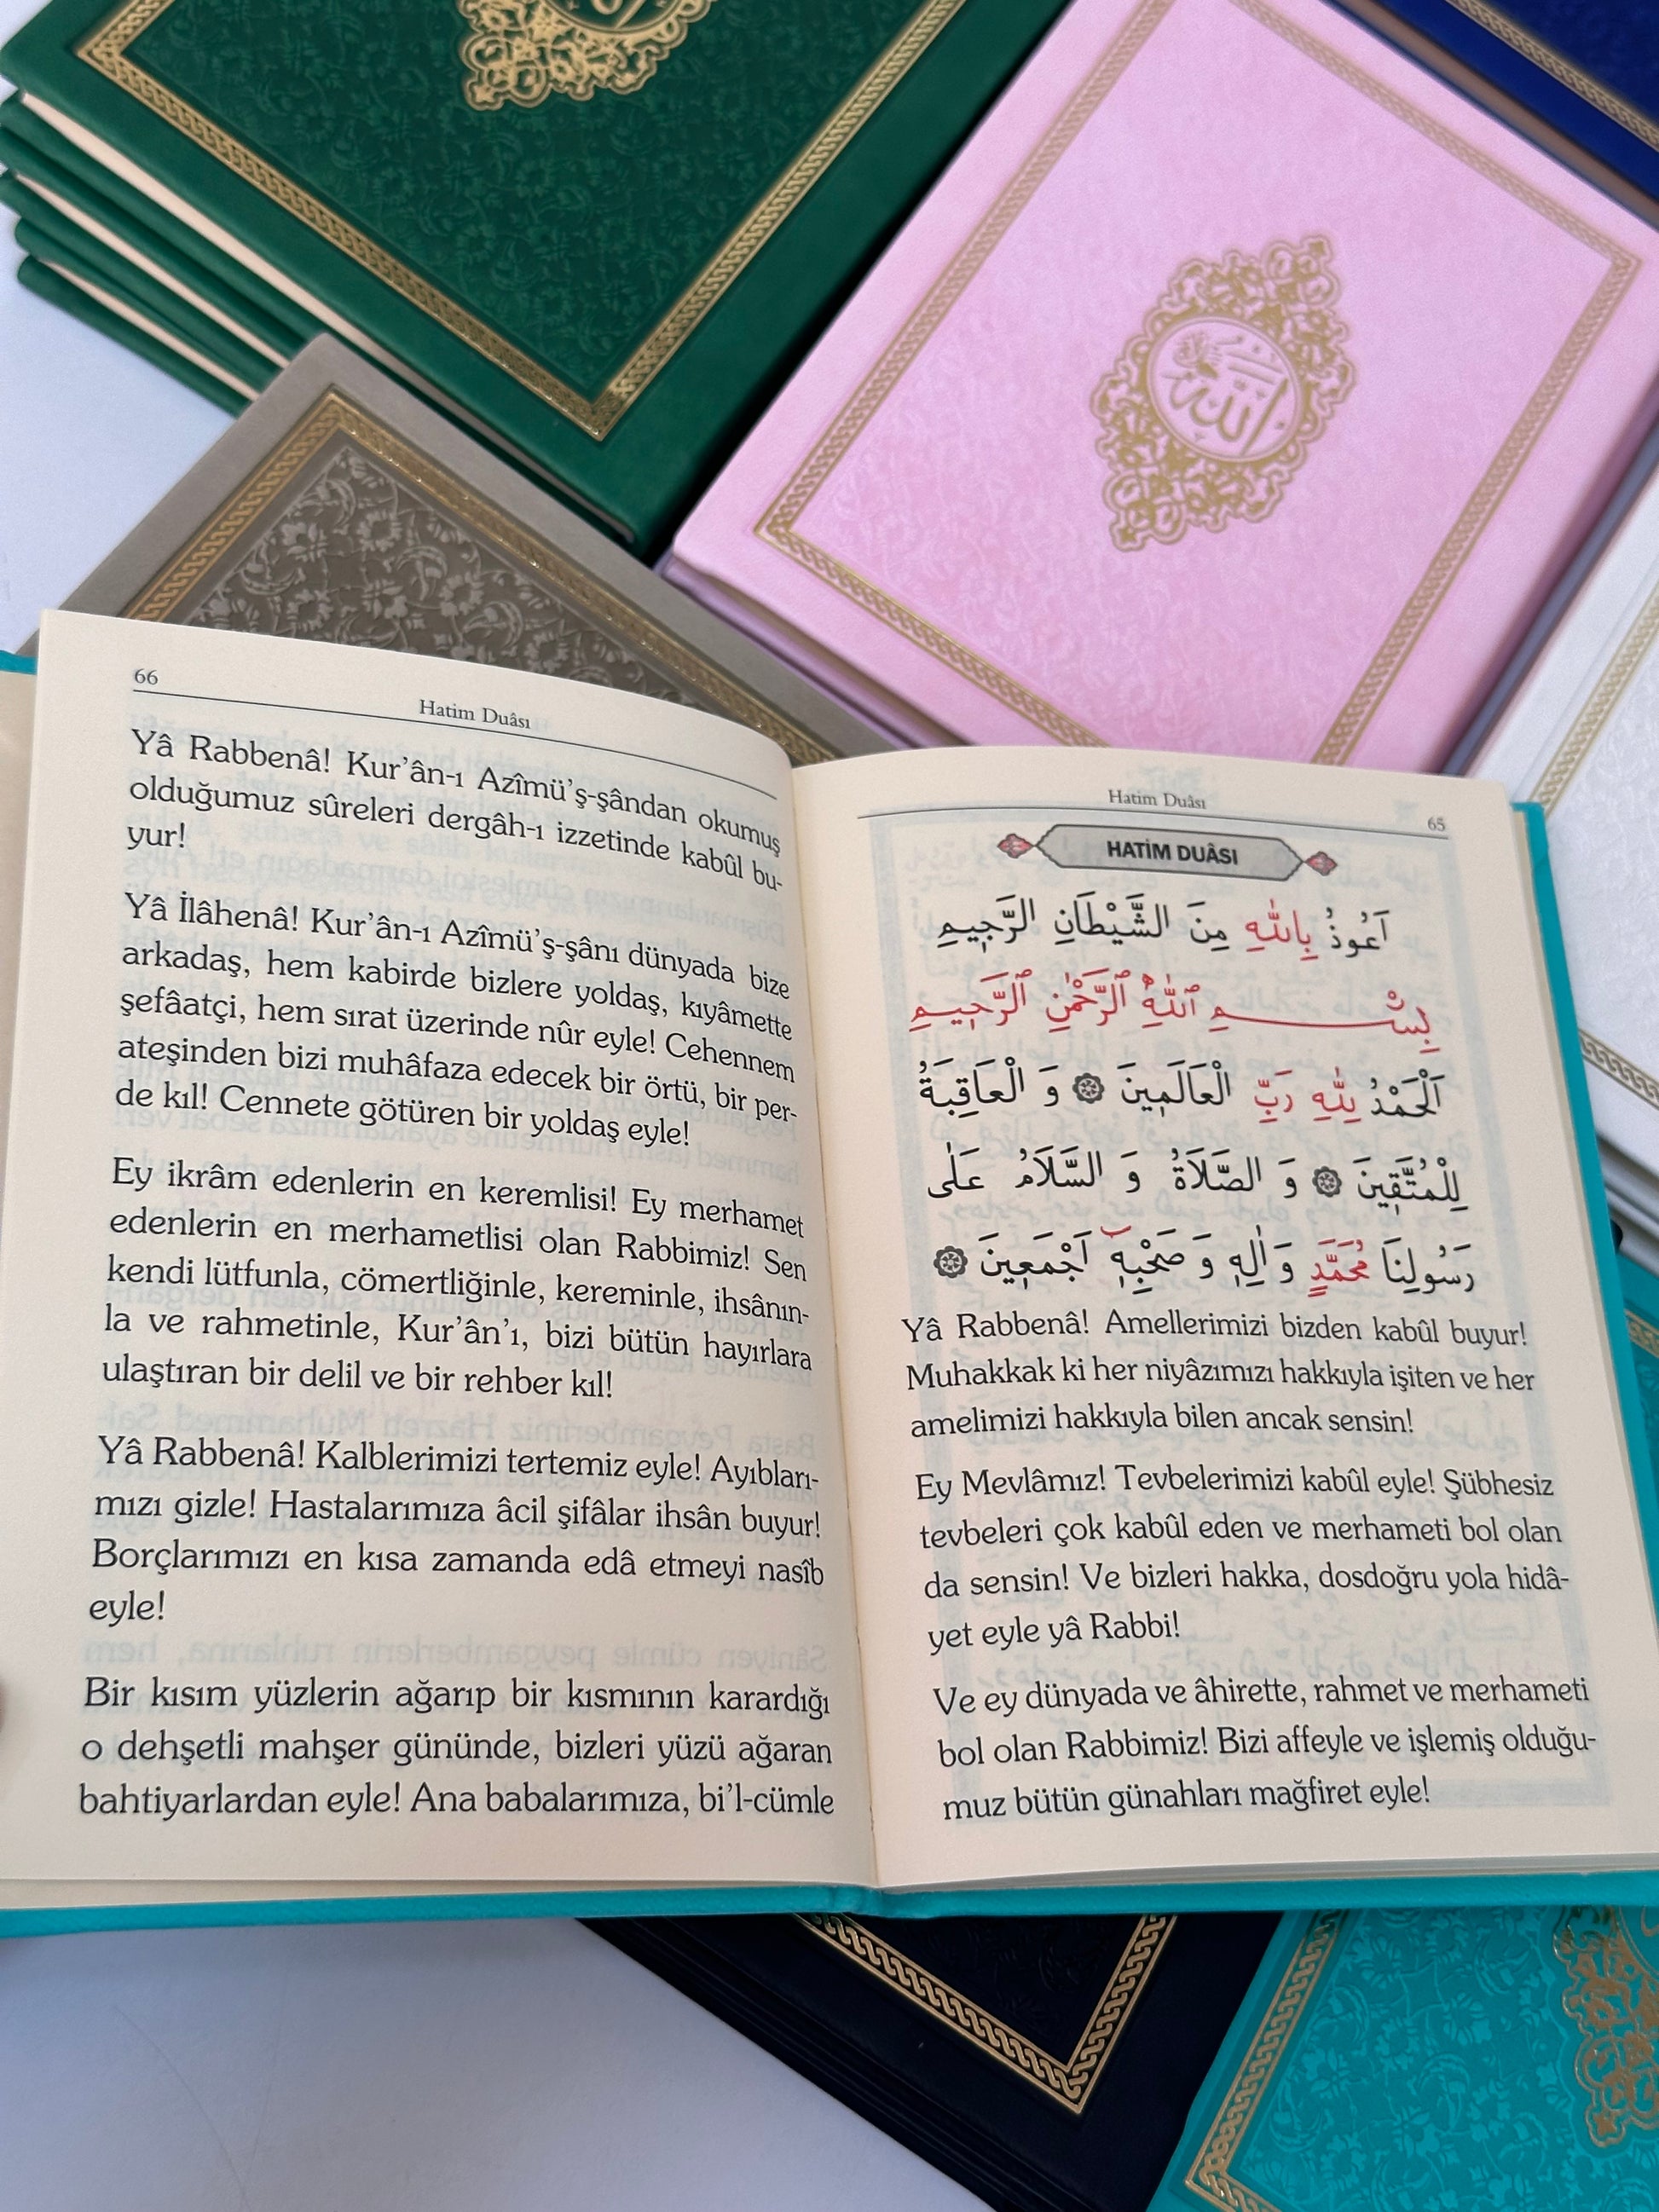 الله
Hatim Duâsı
65
HATİM DUÂSI
اَعُوذُ بِاللّٰهِ مِنَ الشَّيْطَانِ الرَّجِيمِ
بِسْــــــمِ ٱللّٰهِ ٱلرَّحْمٰنِ ٱلرَّجِيمِ
اَلْحَمْدُ لِلّٰهِ رَبِّ الْعَالَمِينَ ۞ وَ الْعَاقِبَةُ
لِلْمُتَّقِينَ ۞ وَ الصَّلَاةُ وَ السَّلَامُ عَلٰى
رَسُولِنَا مُحَمَّدٍ وَ اٰلِهٖ وَ صَحْبِهٖٓ اَجْمَعِينَ ۞
Yâ Rabbenâ! Amellerimizi bizden kabûl buyur!
Muhakkak ki her niyâzımızı hakkıyla işiten ve her
amelimizi hakkıyla bilen ancak sensin!
Ey Mevlâmız! Tevbelerimizi kabûl eyle! Şübhesiz
tevbeleri çok kabûl eden ve merhameti bol olan
da sensin! Ve bizleri hakka, dosdoğru yola hidâ-
yet eyle yâ Rabbi!
Ve ey dünyada ve âhirette, rahmet ve merhameti
bol olan Rabbimiz! Bizi affeyle ve işlemiş olduğu-
muz bütün günahları mağfiret eyle!
66
Hatim Duâsı
Yâ Rabbenâ! Kur’ân-ı Azîmü’ş-şândan okumuş
olduğumuz sûreleri dergâh-ı izzetinde kabûl bu-
yur!
Yâ İlâhenâ! Kur’ân-ı Azîmü’ş-şânı dünyada bize
arkadaş, hem kabirde bizlere yoldaş, kıyâmette
şefâatçi, hem sırat üzerinde nûr eyle! Cehennem
ateşinden bizi muhâfaza edecek bir örtü, bir per-
de kıl! Cennete götüren bir yoldaş eyle!
Ey ikrâm edenlerin en keremlisi! Ey merhamet
edenlerin en merhametlisi olan Rabbimiz! Sen
kendi lütfunla, cömertliğinle, kereminle, ihsânın-
la ve rahmetinle, Kur’ân’ı, bizi bütün hayırlara
ulaştıran bir delil ve bir rehber kıl!
Yâ Rabbenâ! Kalblerimizi tertemiz eyle! Ayıbları-
mızı gizle! Hastalarımıza âcil şifâlar ihsân buyur!
Borçlarımızı en kısa zamanda edâ etmeyi nasîb
eyle!
Bir kısım yüzlerin ağarıp bir kısmının karardığı
o dehşetli mahşer gününde, bizleri yüzü ağaran
bahtiyarlardan eyle! Ana babalarımıza, bi’l-cümle